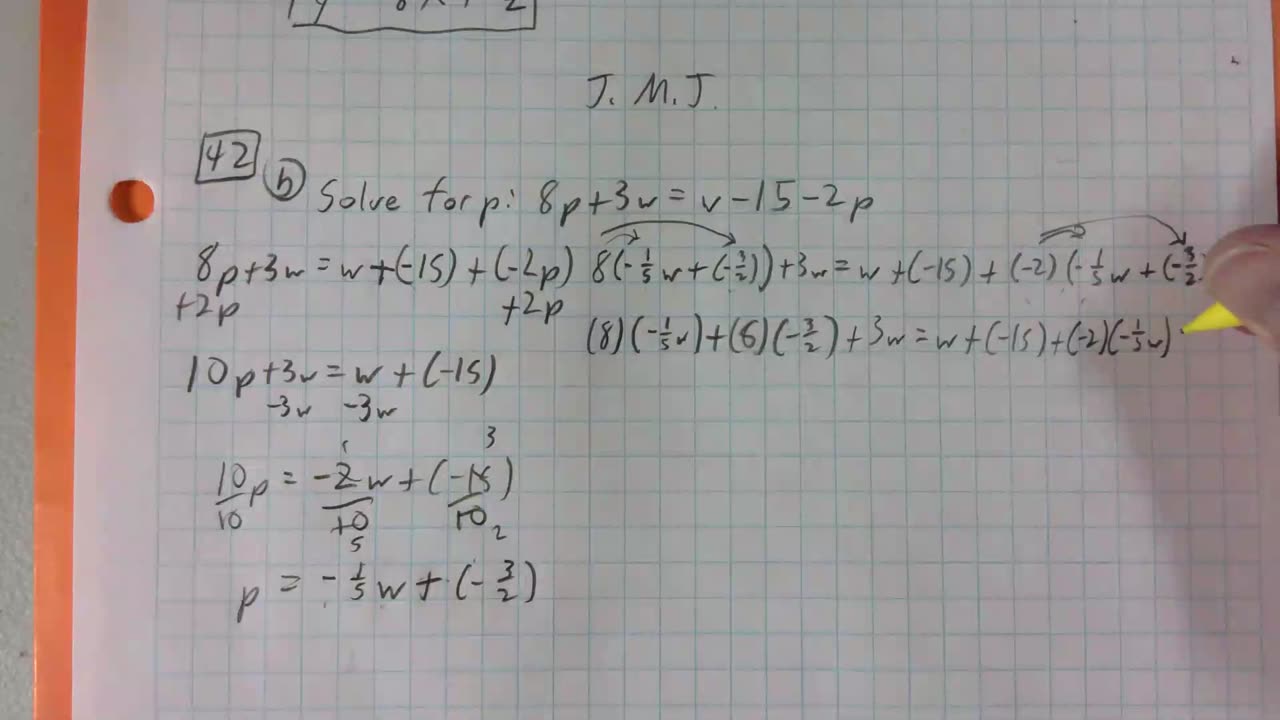 J. M. J.
42 b Solve for p: 8p+3w = v-15-2p
8p+3w = w+(-15)+(-2p)
+2p +2p
10p+3w = w+(-15)
-3w -3w
1 3
10p = -2w+(-15)
10 10 10
5 2
p = -1/5w+(-3/2)
8(-1/5w+(-3/2))+3w = w+(-15)+(-2)(-1/5w+(-3/2)
(8)(-1/5w)+(6)(-3/2)+3w = w+(-15)+(-2)(-1/5w)